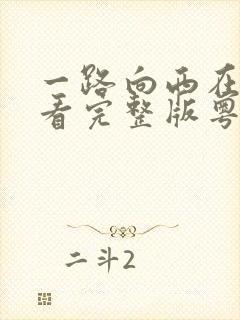 一路向西在
看完整版粤
二斗2